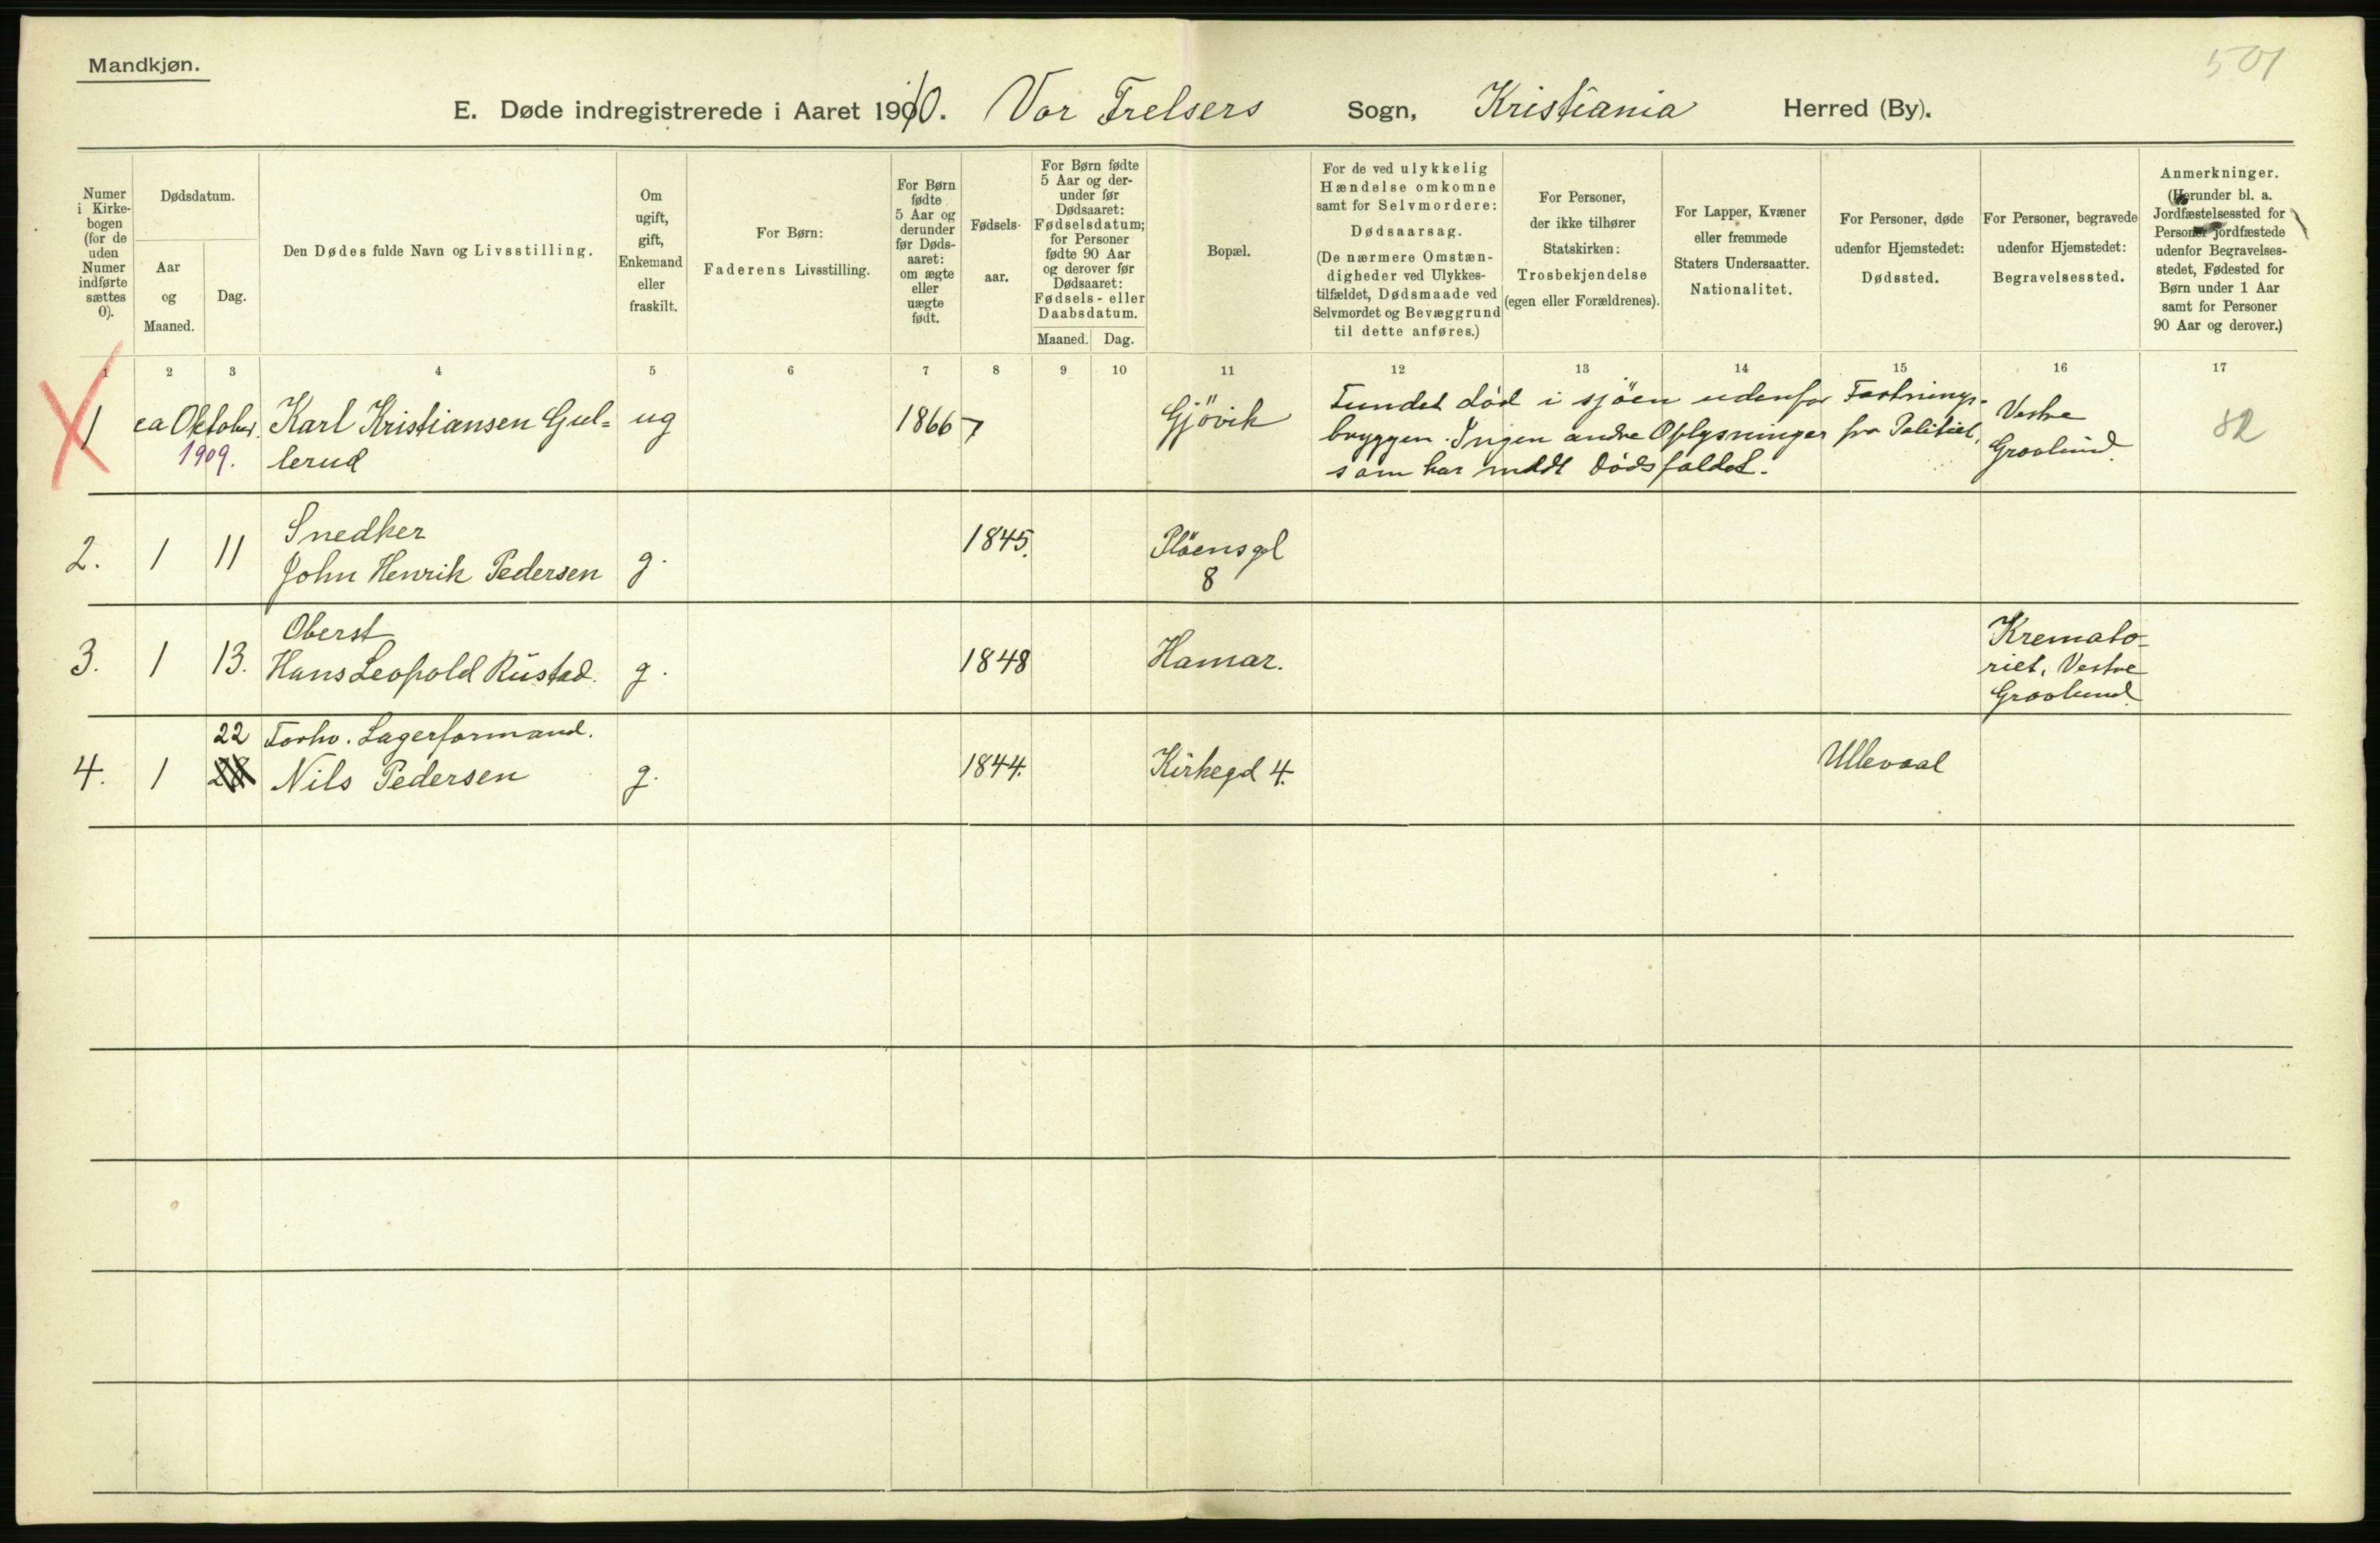 Mandkjøn.
501
E. Døde indregistrerede i Aaret 1910. Vor Frelsers Sogn, Kristiania Herred (By).
Numer i Kirkebogen (for de uden Numer indførte sættes 0).
Dødsdatum.
Aar og Maaned.
Dag.
Den Dødes fulde Navn og Livsstilling.
Om ugift, gift, Enkemand eller fraskilt.
For Børn: Faderens Livsstilling.
For Børn fødte 5 Aar og derunder før Dødsaaret: om ægte eller uægte født.
Fødselsaar.
For Børn fødte 5 Aar og derunder før Dødsaaret: Fødselsdatum; for Personer fødte 90 Aar og derover før Dødsaaret: Fødsels- eller Daabsdatum.
Maaned. Dag.
Bopæl.
For de ved ulykkelig Hændelse omkomne samt for Selvmordere: Dødsaarsag. (De nærmere Omstændigheder ved Ulykkestilfældet, Dødsmaade ved Selvmordet og Bevæggrund til dette anføres.)
For Personer, der ikke tilhører Statskirken: Trosbekjendelse (egen eller Forældrenes).
For Lapper, Kvæner eller fremmede Staters Undersaatter. Nationalitet.
For Personer, døde udenfor Hjemstedet: Dødssted.
For Personer, begravede udenfor Hjemstedet: Begravelsessted.
Anmerkninger. (Herunder bl. a. Jordfæstelsessted for Personer jordfæstede udenfor Begravelsesstedet, Fødested for Børn under 1 Aar samt for Personer 90 Aar og derover.)
1 2 3 4 5 6 7 8 9 10 11 12 13 14 15 16 17
1 ca Oktober 1909. Karl Kristiansen Gul=
lerud
ug 1866 7 Gjövik
Fundet död i sjöen udenfor Fæstnings-
bryggen. Ingen andre Oplysninger fra Politiet,
som har meldt Dödsfaldet.
Vestre
Gravlund.
82
Snedker
2. 1 11 John Henrik Pedersen g. 1845. Plöensgd
8
Oberst
3. 1 13. Hans Leopold Rustad. g. 1848 Hamar.
Kremato-
riet, Vestre
Gravlund.
22 Forhv. Lagerformand.
4. 1 Nils Pedersen g. 1844. Kirkegd 4. Ullevaal